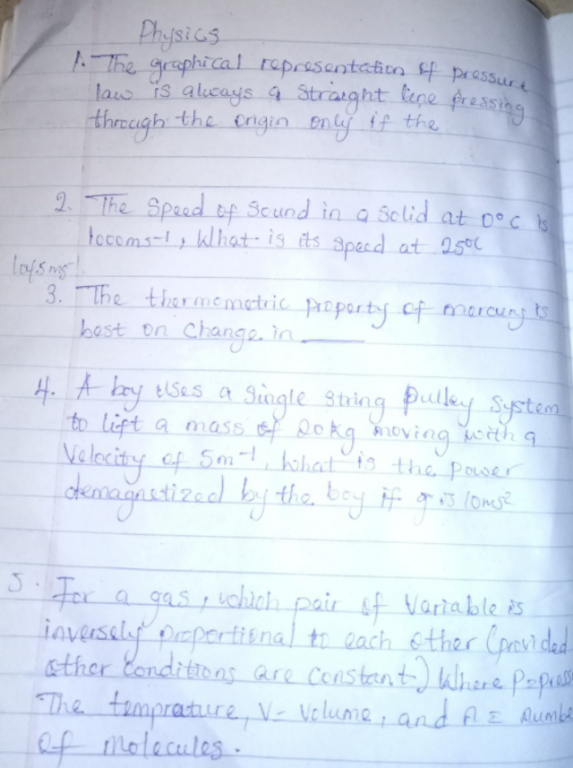 Physics
1. The graphical representation of pressure
law is always a straight line pressing
through the origin only if the
2. The Speed of Sound in a Solid at 0°C is
1000ms-1, What is its speed at 25°C
3. The thermometric property of mercury is
best on change in ____
4. A boy uses a single string pulley system
to lift a mass of 20kg moving with a
Velocity of 5m-1, what is the power
demagnetized by the boy if g is 10ms2
5. For a gas, which pair of Variable is
inversely proportional to each other (provided
other conditions are constant) Where P=press
The temprature, V- Volume, and n = numbe
of molecules.